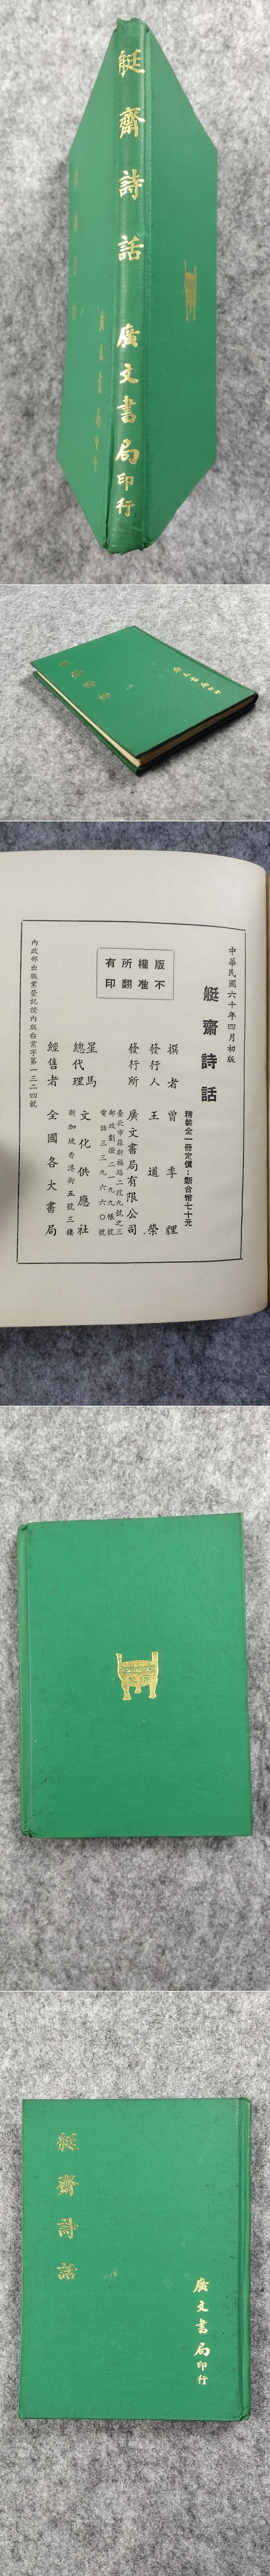 艇齋詩話
廣文書局印行
艇齋詩話
廣文書局印行
中華民國六十年四月初版
艇齋詩話
精裝全一冊定價：新台幣七十元
撰者 曾季貍
發行人 王道榮
發行所 廣文書局有限公司
臺北市羅斯福路二段九號之三
郵政劃撥二一九九帳號
電話三三九六六〇號
星馬總代理 文化供應社
新加坡香港街五號三樓
經售者 全國各大書局
版權所有
不准翻印
內政部出版業登記證內版台業字第一三二四號
艇齋詩話
廣文書局印行